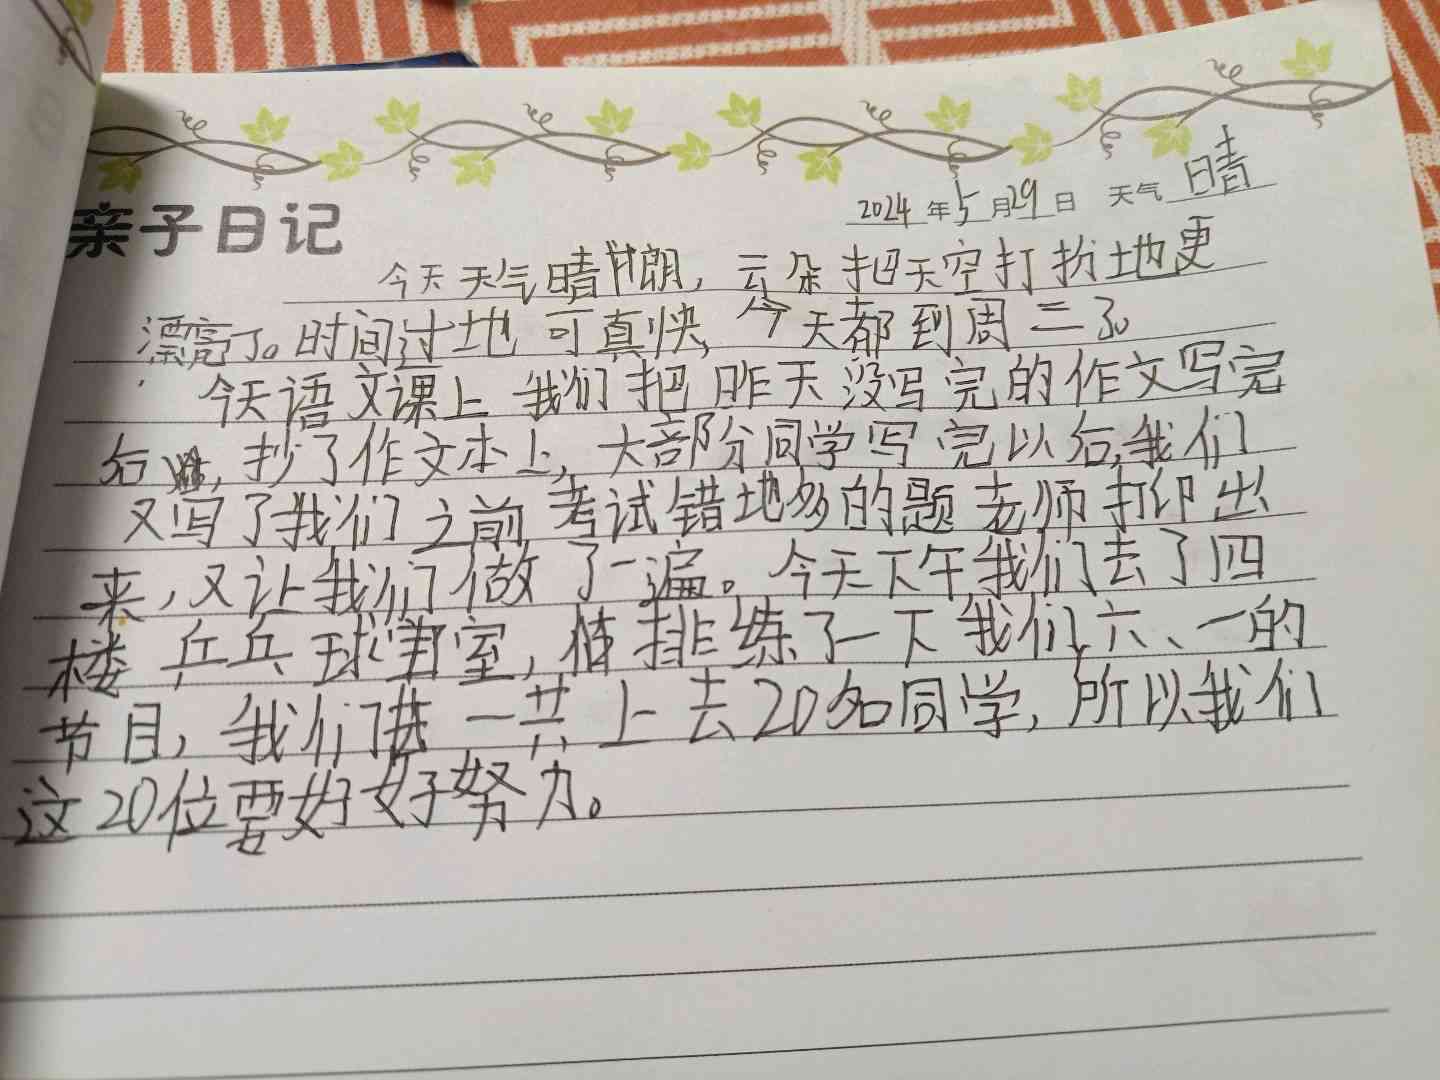 亲子日记
2024年5月29日 天气 晴
今天天气晴朗，云朵把天空打扮地更
漂亮了。时间过地可真快，今天都到周二了。
今天语文课上我们把昨天没写完的作文写完
后，抄了作文本上，大部分同学写完以后，我们
又写了我们之前考试错地多的题老师打印出
来，又让我们做了一遍。今天下午我们去了四
楼乒乓球室，排练了一下我们六、一的
节目，我们一共上去20名同学，所以我们
这20位要好好努力。